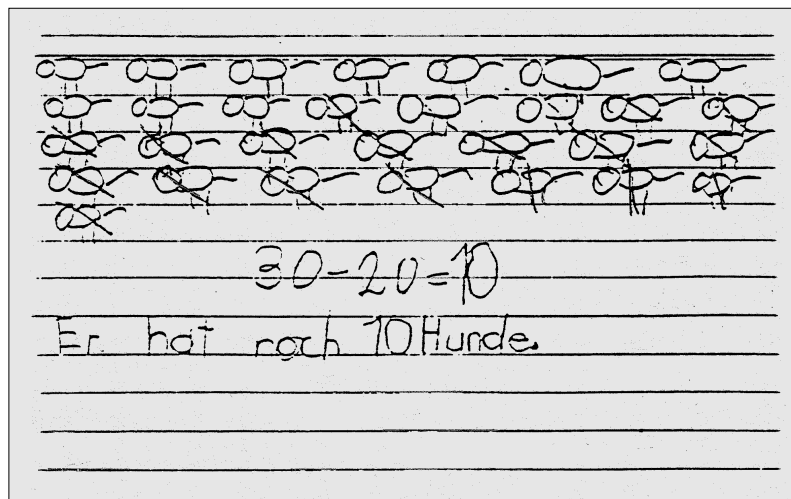 30-20=10
Er hat noch 10 Hunde.